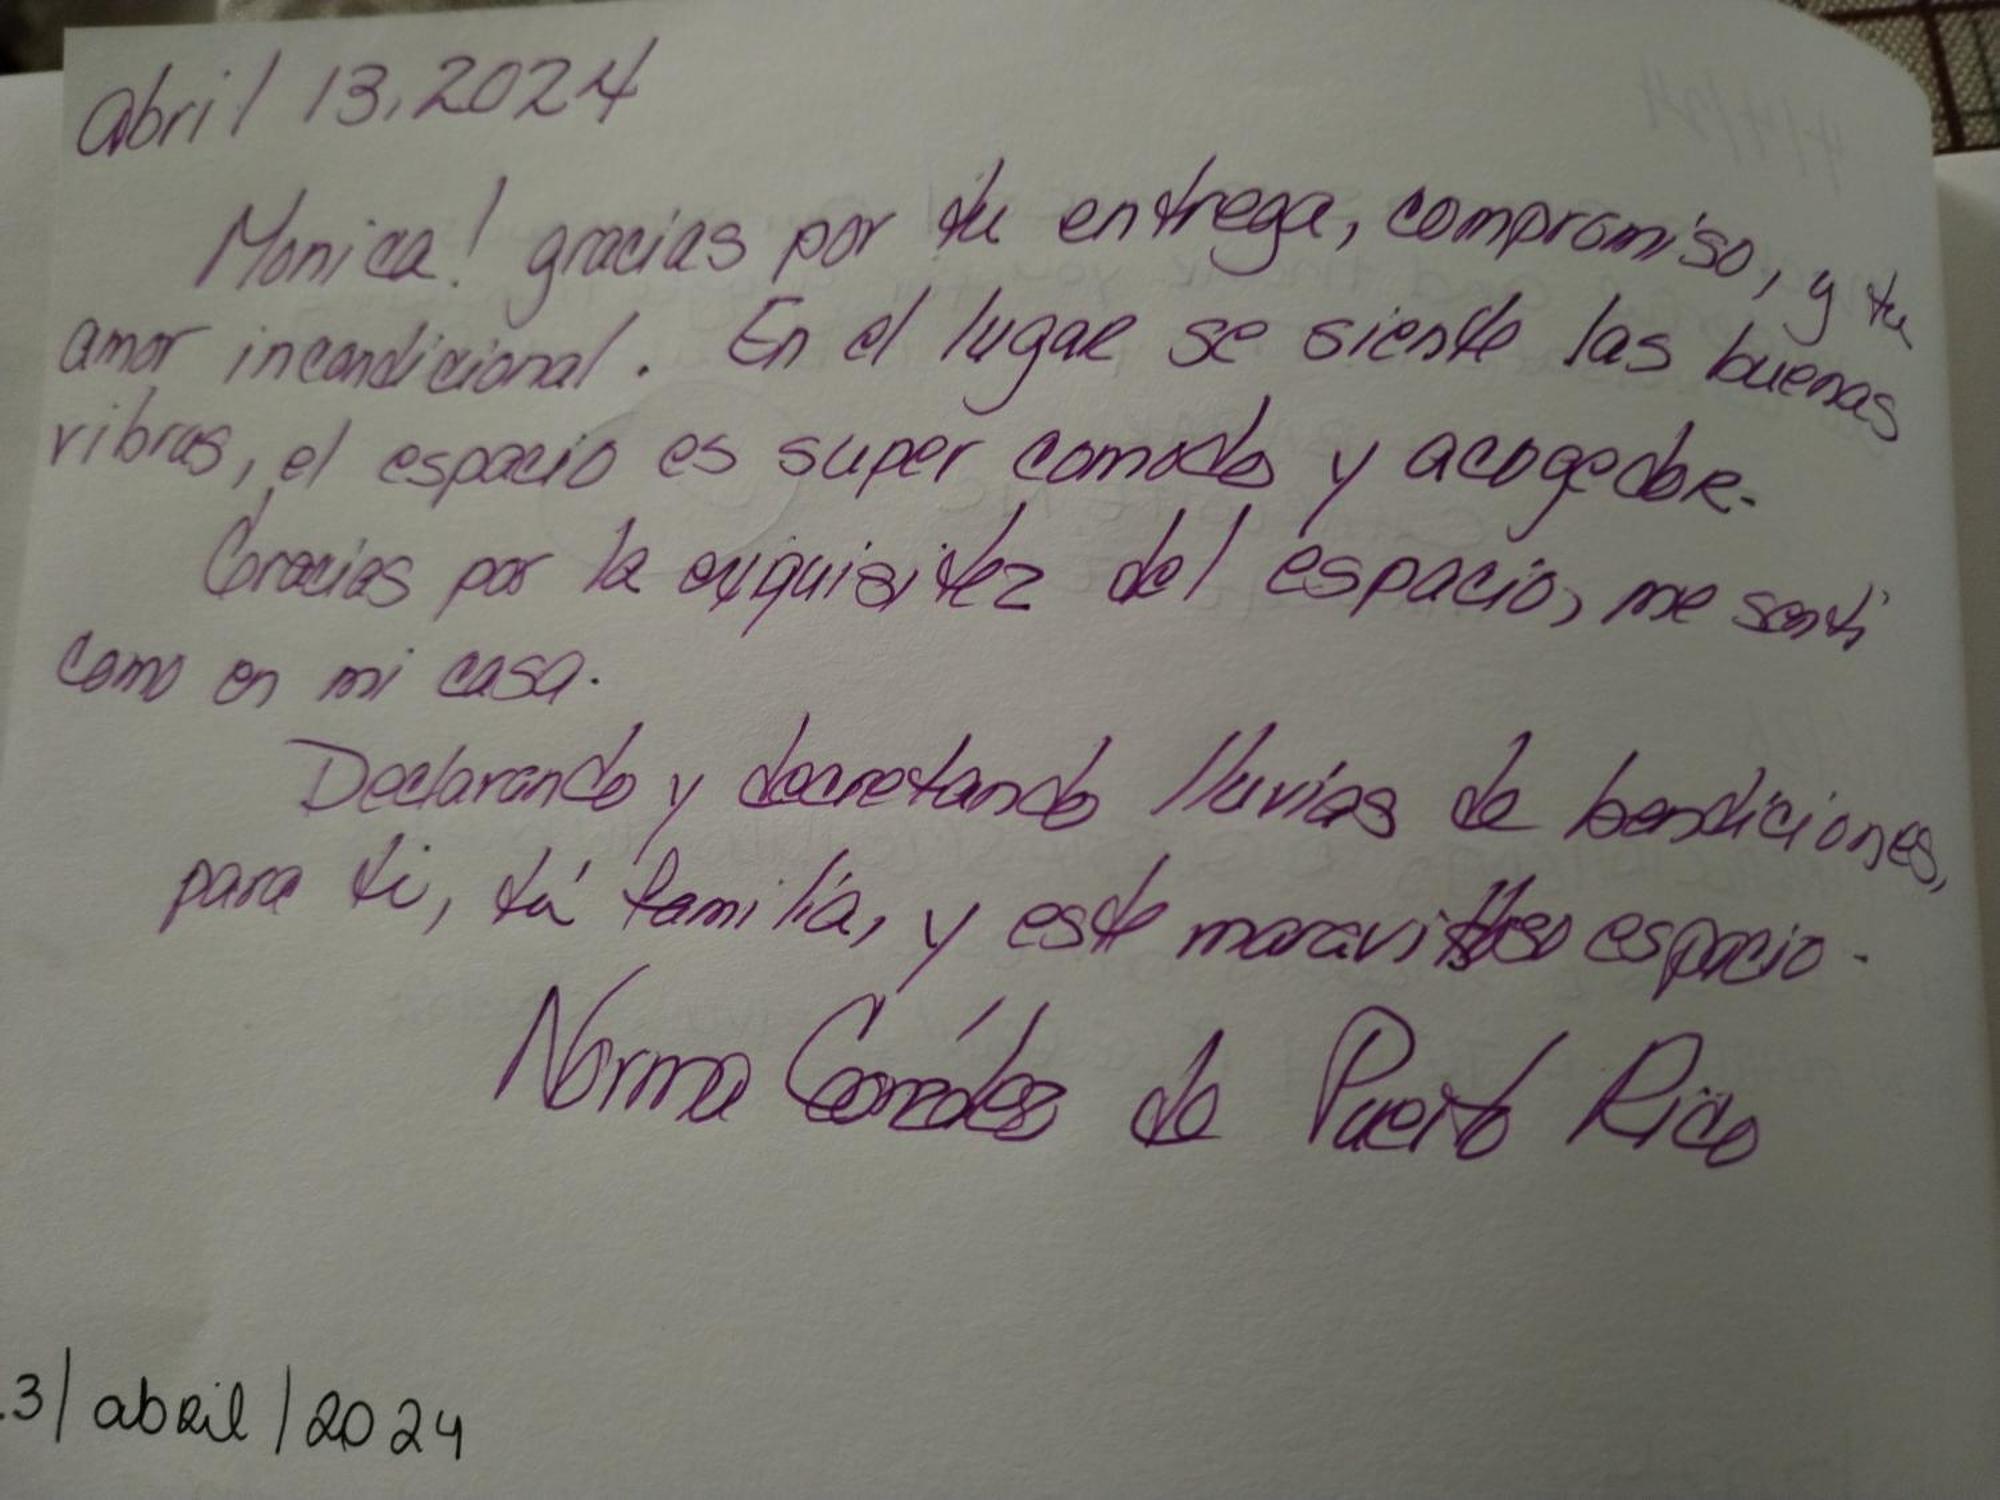 abril 13, 2024
Monica! gracias por tu entrega, compromiso, y tu
amor incondicional. En el lugar se siente las buenas
vibras, el espacio es super comodo y acogedor.
Gracias por la exquisitez del espacio, me sentí
como en mi casa.
Declarando y decretando lluvias de bendiciones,
para ti, tú familía, y este maravilloso espacio.
Norma de Puerto Rico
3/abril/2024